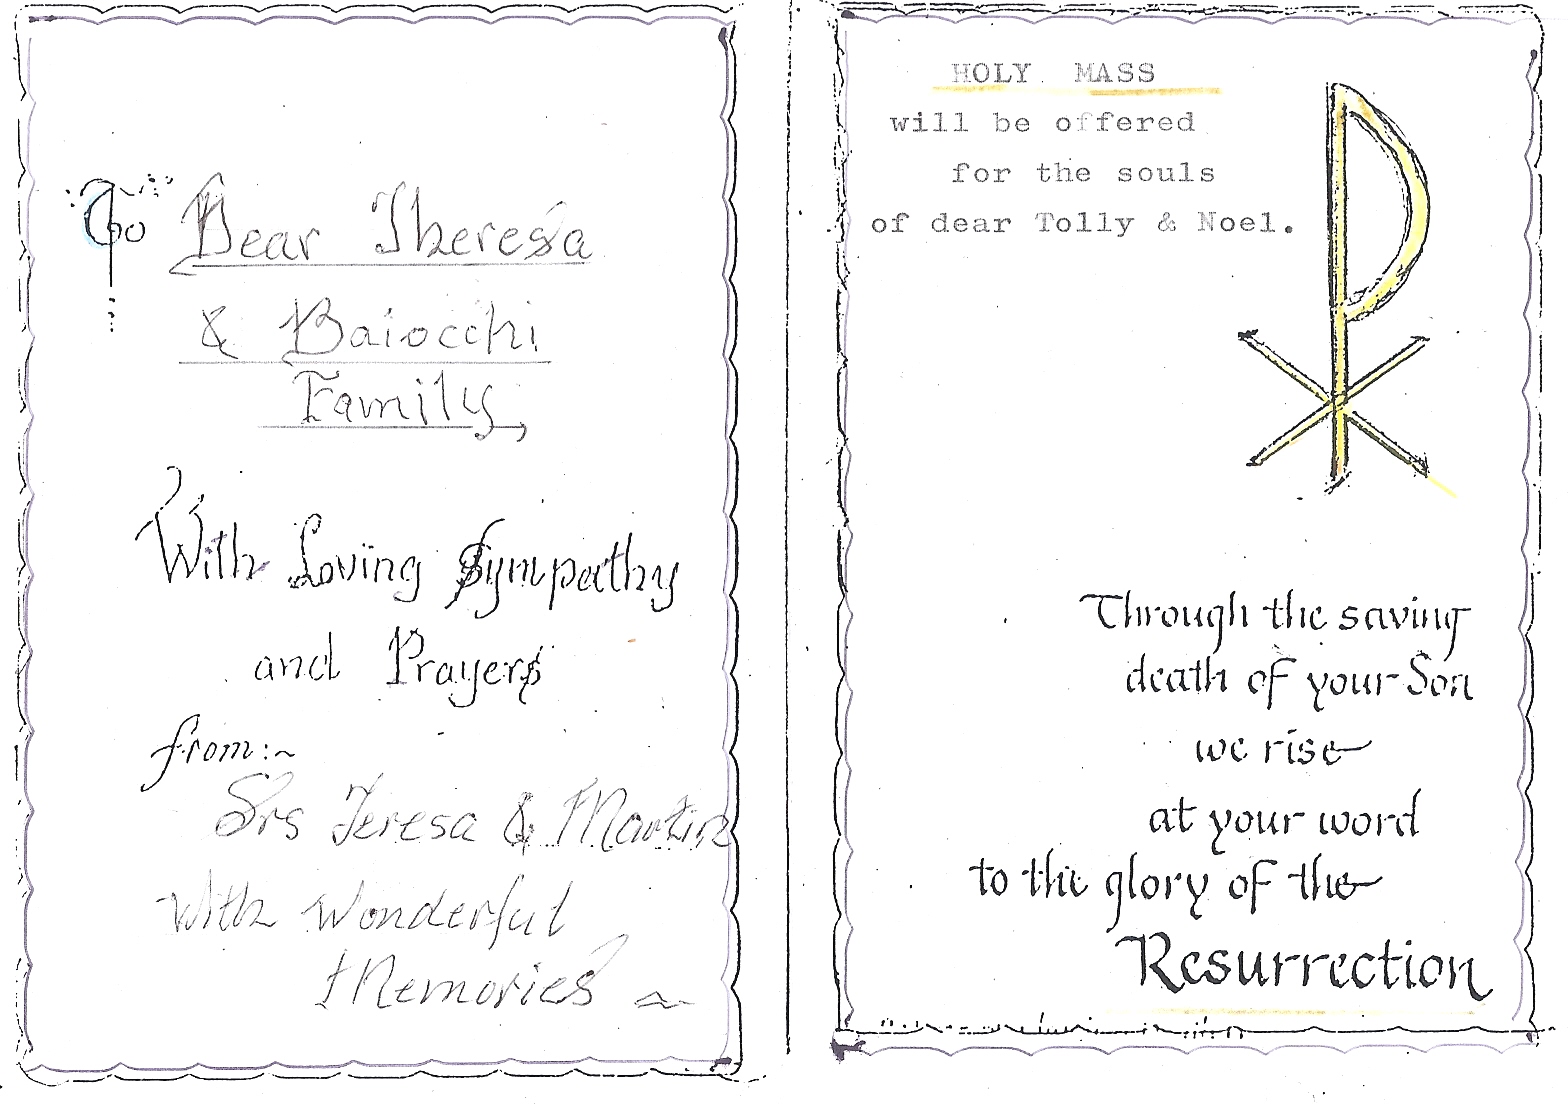 To Dear Theresa
& Baiocchi
Family,
With Loving Sympathy
and Prayers
from:~
Srs Teresa & Martin
With Wonderful
Memories ~
HOLY MASS
will be offered
for the souls
of dear Tolly & Noel.
Through the saving
death of your Son
we rise
at your word
to the glory of the
Resurrection